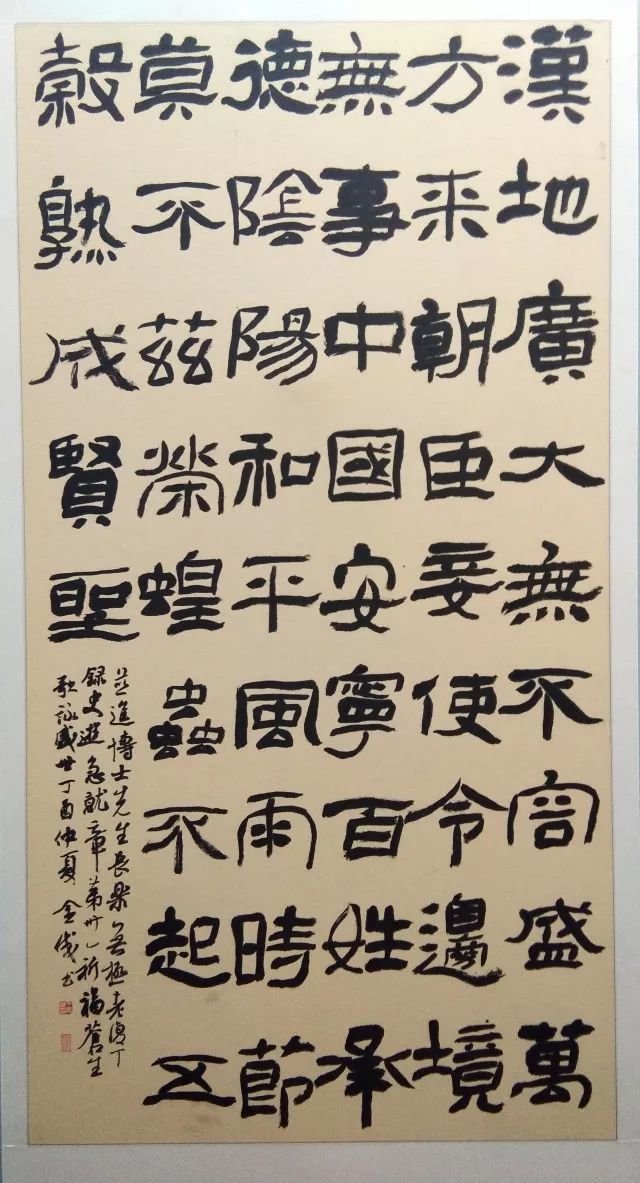 漢地廣大無不容盛萬
方来朝臣妾使令邊境
無事中國安寧百姓承
德陰陽和平風雨時節
莫不茲榮蝗蟲不起五
穀熟成賢聖
並進博士先生長樂無極老復丁
録史游急就章第卅一祈福蒼生
歌詠盛世丁酉仲夏